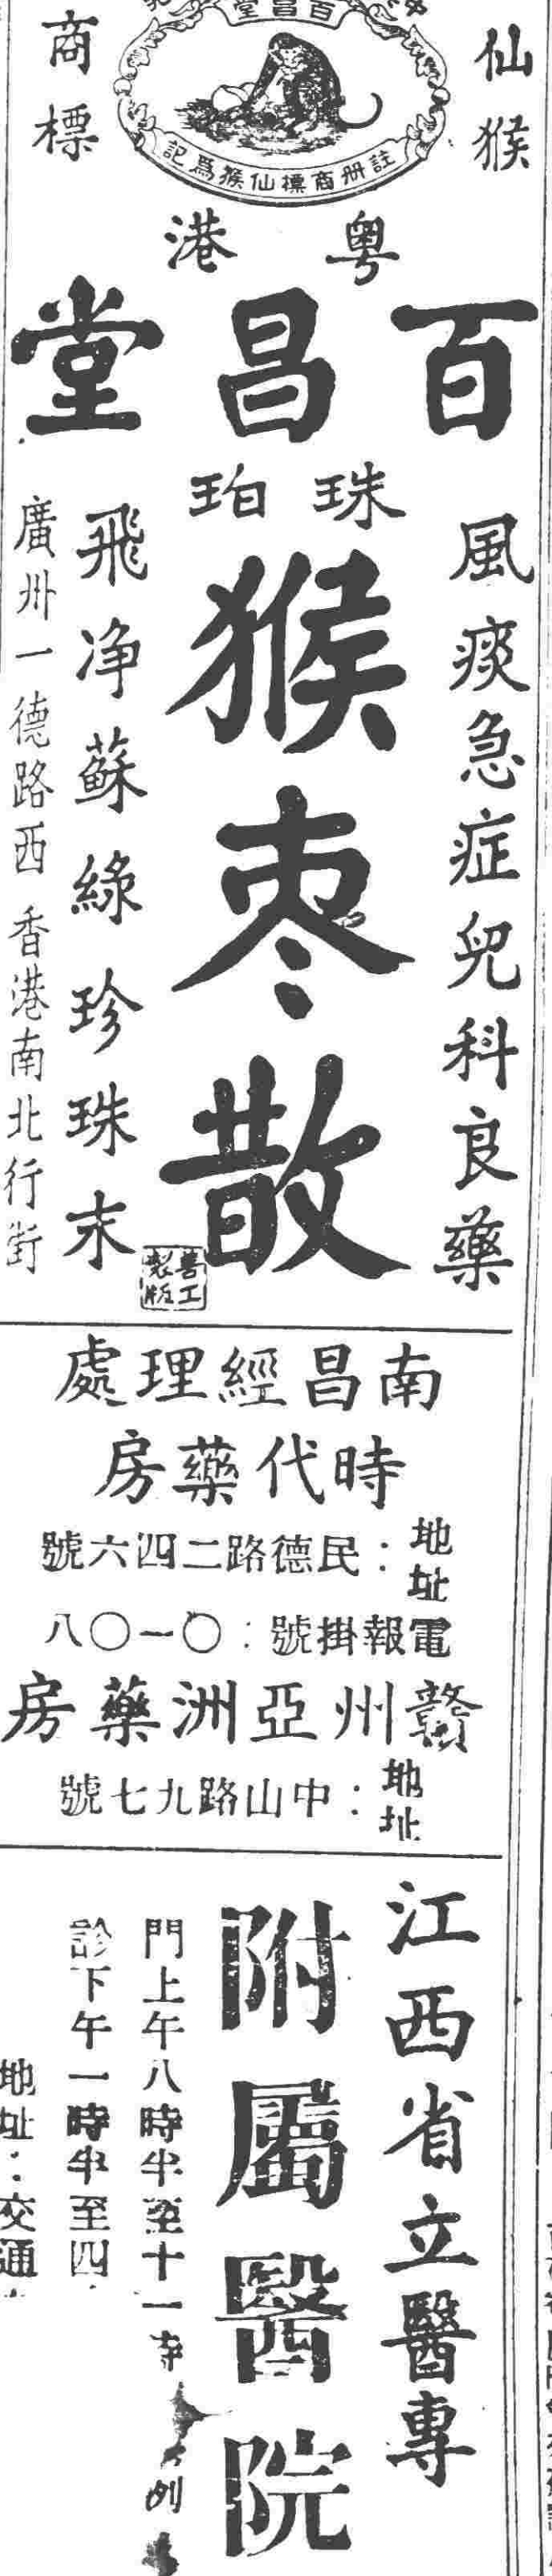 仙猴
商標
百昌堂
註册商標仙猴為記
粤港
百昌堂
風痰急症兒科良藥
珠珀
猴枣散
飛净蘇綠珍珠末
廣州一德路西 香港南北行街
善工製版
南昌經理處
時代藥房
地址：民德路二四六號
電報掛號：〇一〇八
贛州亞洲藥房
地址：中山路九七號
江西省立醫專
附屬醫院
門上午八時半至十一
診下午一時半至四
地址：交通